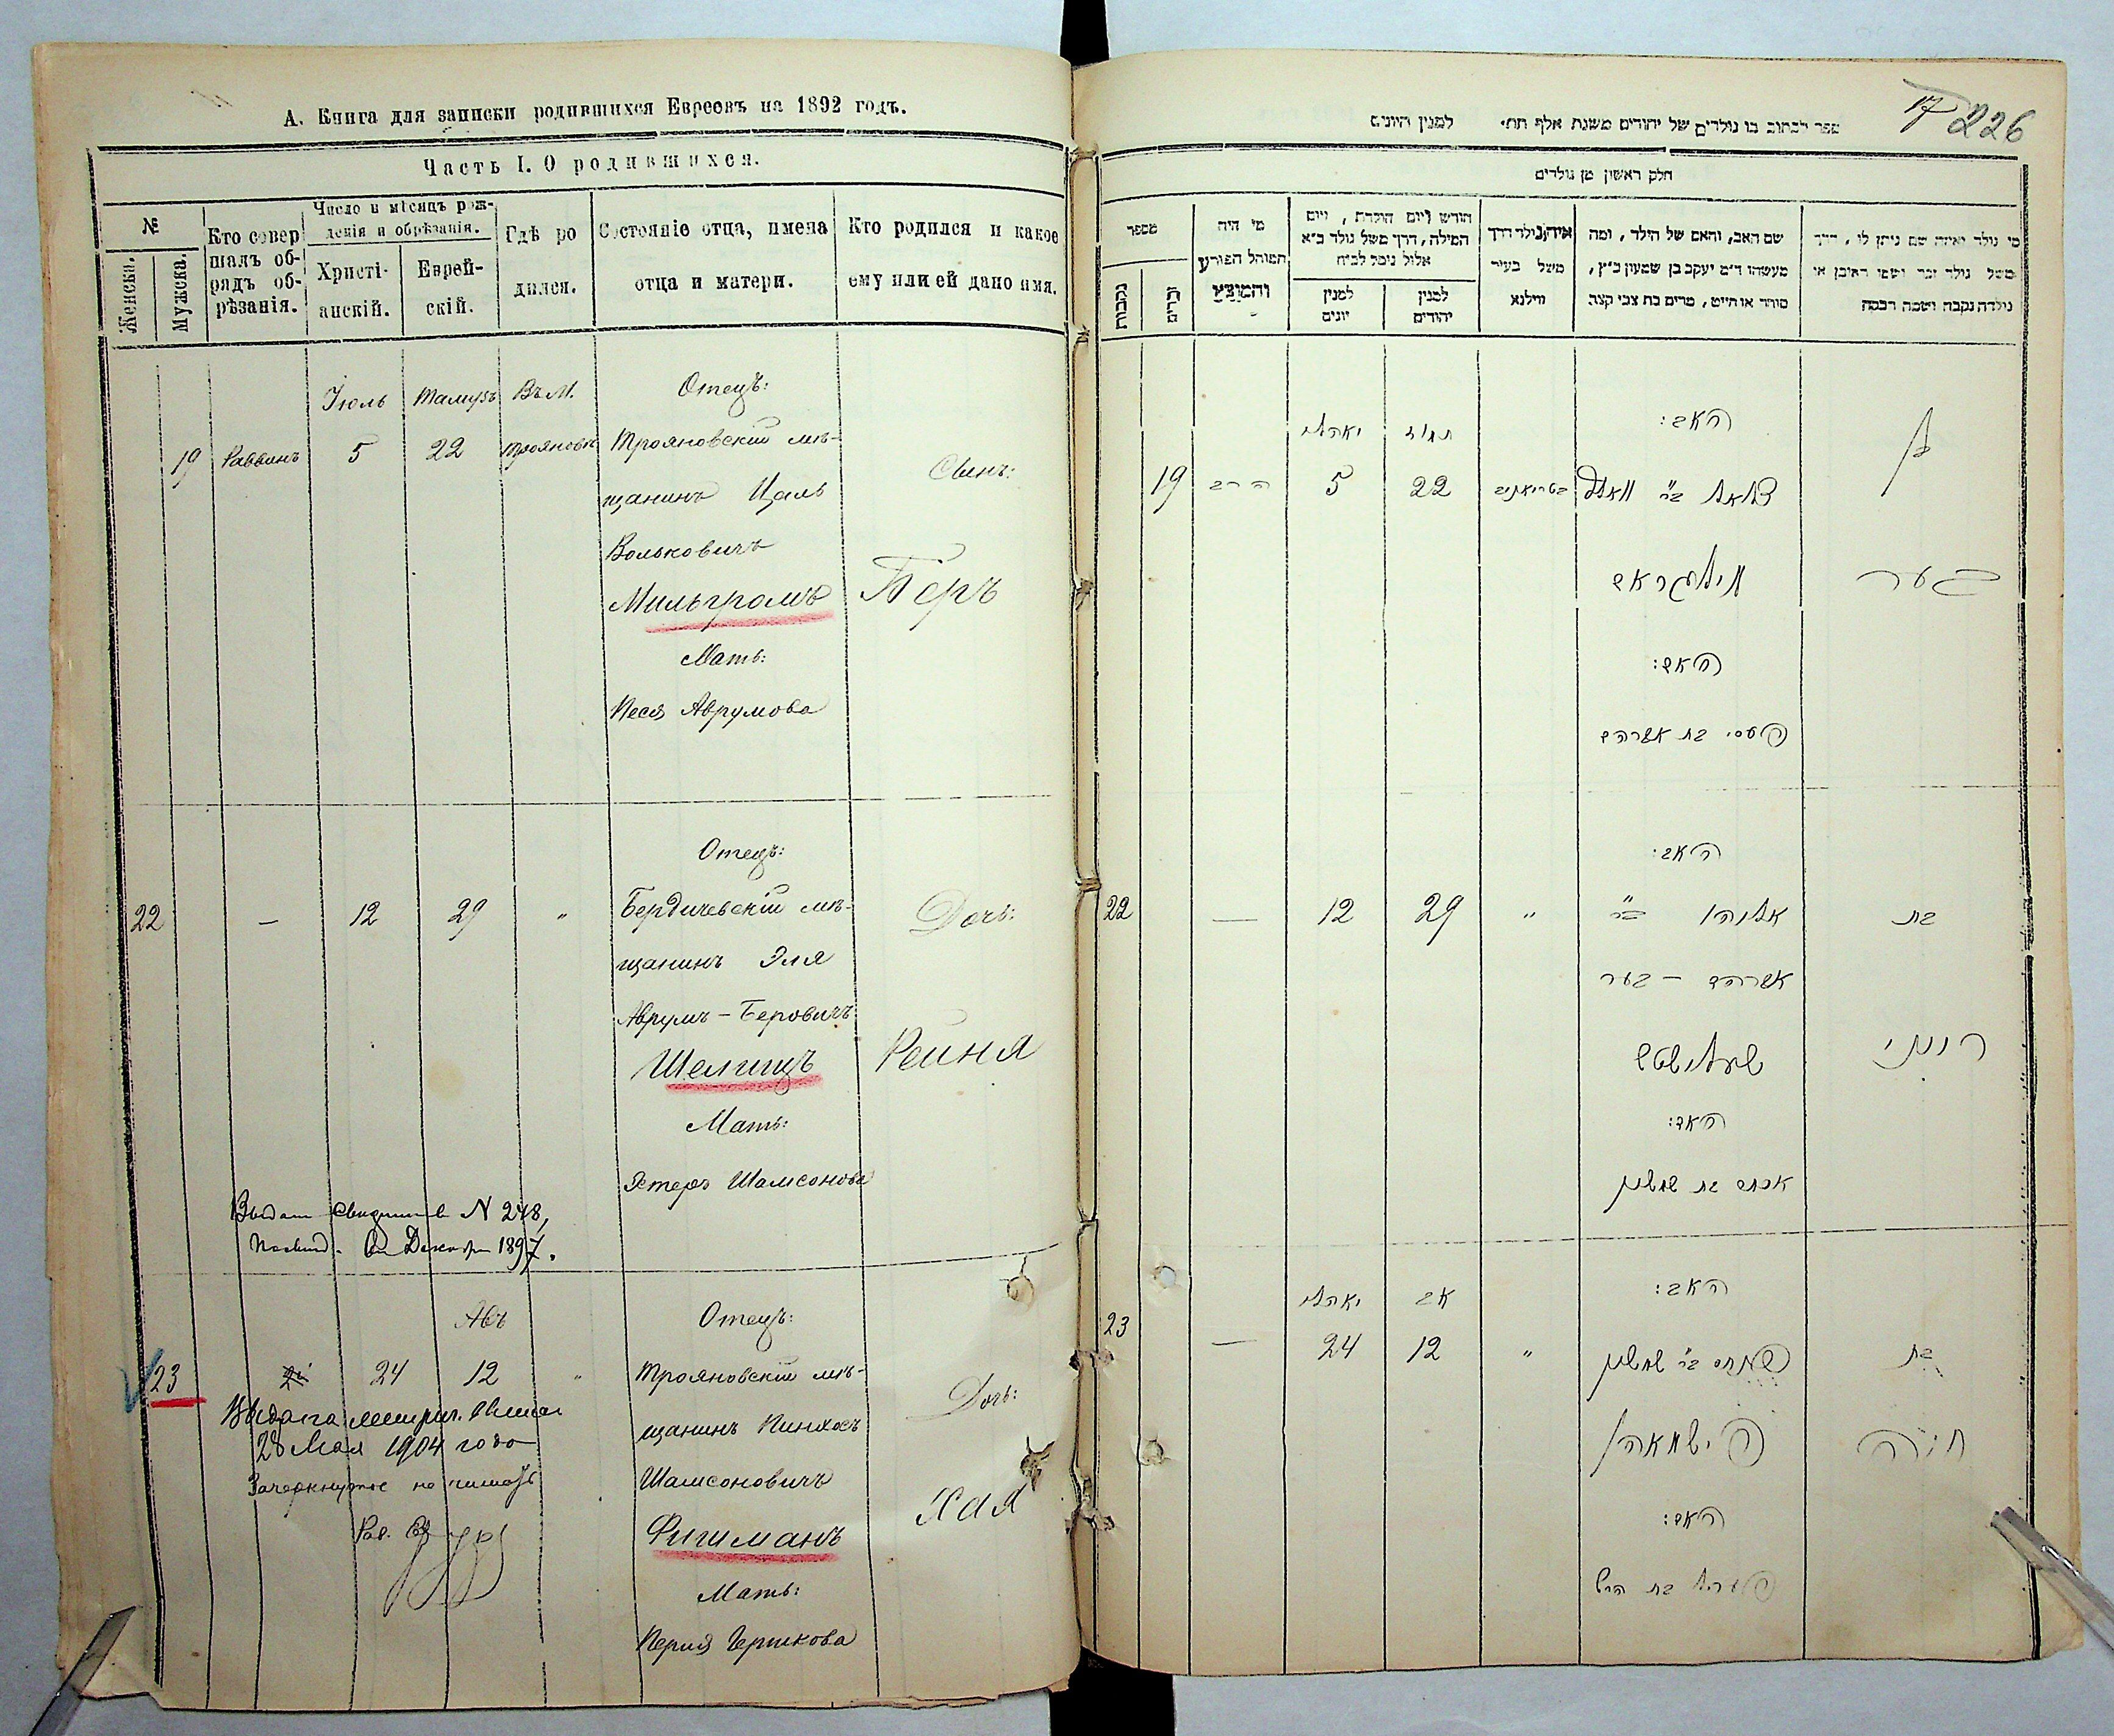 А. Книга для записки родившихся Евреевъ на 1892 годъ.
Часть I. О родившихся.
№
Женска.
Мужска.
Кто совер
шалъ об-
рядъ об-
рѣзанія.
Число и мѣсяцъ рож-
денія и обрѣзанія.
Христі-
анскій.
Еврей-
скій.
Гдѣ ро
дился.
Состояніе отца, имена
отца и матери.
Кто родился и какое
ему или ей дано имя.
Іюль Тамузъ Въ М. Отецъ:
19 Раввинъ 5 22 Трояновѣ Трояновскій мѣ-
щанинъ Цаль
Сынъ:
Вольковичъ
Мильгромъ Беръ
Мать:
Песя Аврумова
Отецъ:
22 — 12 29 " Бердичевскій мѣ-
Дочь:
щанинъ Эля
Аврумъ - Беровичъ
Шелищъ Рейня
Мать:
Эстеръ Шамсонова
N 248,
1897.
Авъ Отецъ:
23 24 12 " Трояновскій мѣ-
Дочь:
щанинъ Пинхасъ
Шамсоновичъ
Хая
Фишманъ
Мать:
Перля Гершкова
Выдана метрич.
28 Мая 1904 года
Зачеркнутое не читать
Рав.
17 226
ספר לכתוב בו נולדים של יהודים משנת אלף תת״ למנין היונים
חלק ראשון מן נולדים
מספר
נקבות
זכרים
מי היה
המוהל הפורע
והמוצץ
חודש ויום הולדת, ויום
המילה, דרך משל נולד ב״א
אלול נימל לב״ח
למנין
יונים
למנין
יהודים
איה נולד דרך
משל בעיר
ווילנא
שם האב, והאם של הילד, ומה
מעשהו ד״מ יעקב בן שמעון כ״ץ,
סוחר או חייט, מרים בת צבי קצב
מי נולד ואיזה שם ניתן לו, דרך
משל נולד זכר ושמו ראובן או
נולדה נקבה ושמה רבקה
האב:
יאהלי תמוז
בן
19 הרב 5 22 בטריאניב
מילגראם
בער
האם:
פעסי בת אברהם
האב:
22 — 12 29 " אליהו ב״ר בת
אברהם – בער
שעלישטש רייני
האם:
אסתר בת שמשון
האב:
יאהלי אב
23 — 24 12 " פנחס ב״ר שמשון בת
פישמאן חיה
האם:
פערל בת הירש